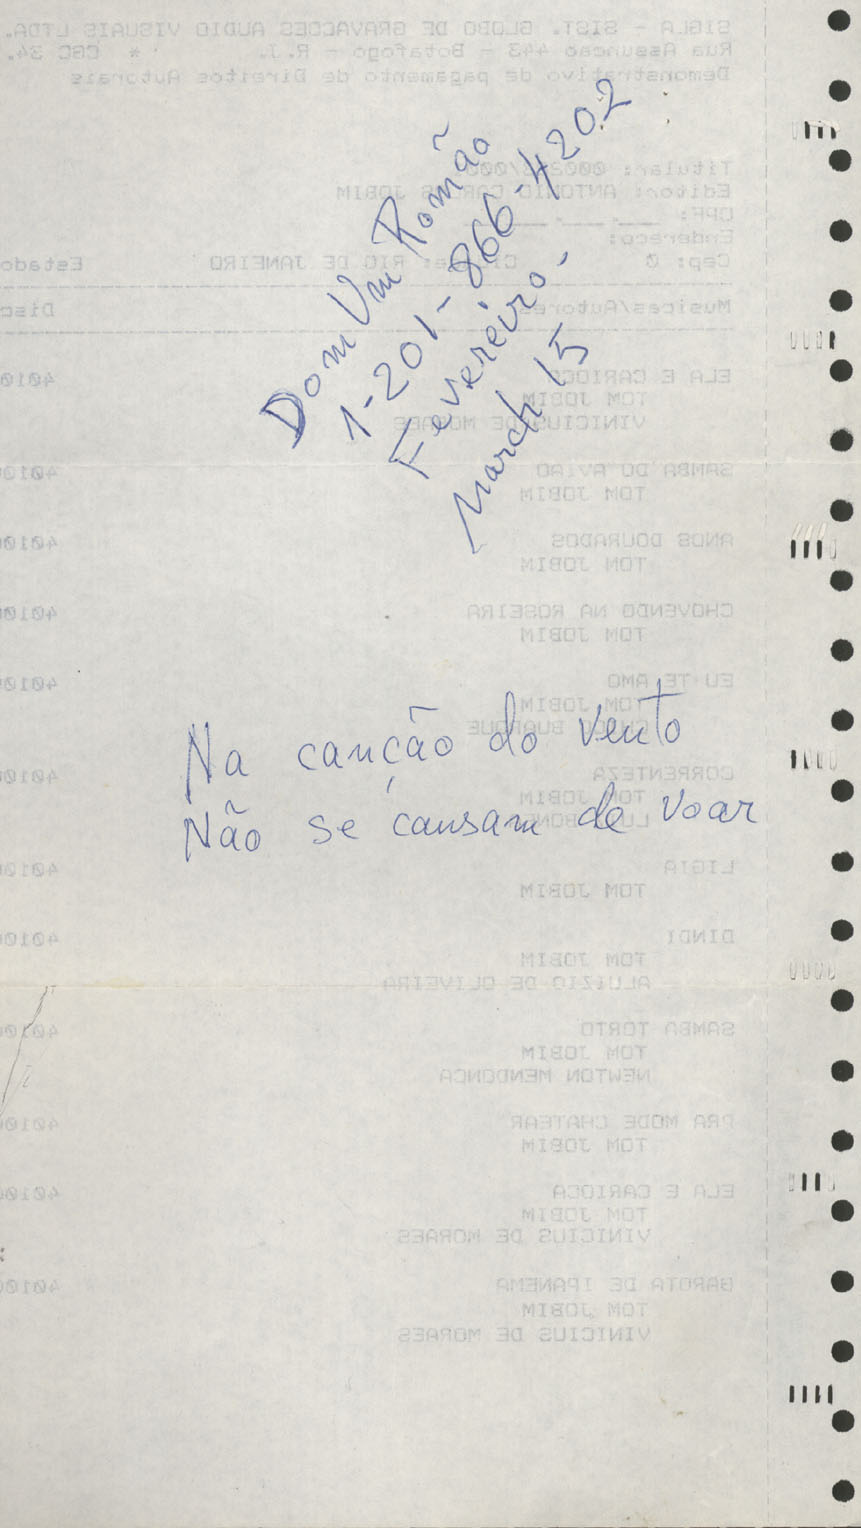 SIGLA - SIST. GLOBO DE GRAVACOES AUDIO VISUAIS LTDA.
Rua Assuncao 443 - Botafogo - R.J. * CGC 34.
Demonstrativo de pagamento de Direitos Autorais
Titular:
Editor: ANTONIO CARLOS JOBIM
CPF:
Endereco:
Cep: 0 Cidade: RIO DE JANEIRO Estado
Musicas/Autores Disc
ELA E CARIOCA 40100
TOM JOBIM
VINICIUS DE MORAES
SAMBA DO AVIAO 40100
TOM JOBIM
ANOS DOURADOS 40100
TOM JOBIM
CHOVENDO NA ROSEIRA 40100
TOM JOBIM
EU TE AMO 40100
TOM JOBIM
CHICO BUARQUE
CORRENTEZA 40100
TOM JOBIM
LUIZ BONFA
LIGIA 40100
TOM JOBIM
DINDI 40100
TOM JOBIM
ALUIZIO DE OLIVEIRA
SAMBA TORTO 40100
TOM JOBIM
NEWTON MENDONCA
PRA MODE CHATEAR 40100
TOM JOBIM
ELA E CARIOCA 40100
TOM JOBIM
VINICIUS DE MORAES
GAROTA DE IPANEMA 40100
TOM JOBIM
VINICIUS DE MORAES
Dom Um Romão
1-201-866-4202
Fevereiro.
March 15
Na canção do vento
Não se cansam de voar